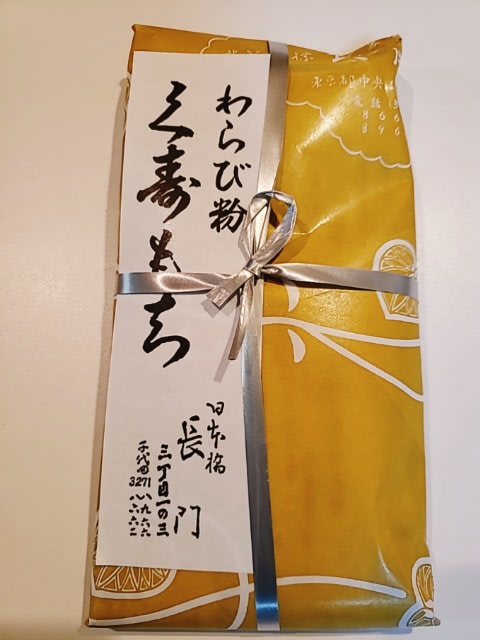 わらび粉
久寿もち
日本橋
長門
三丁目一の三
千代田
3271
八九六六
八六六二
東京都中央
電話(3
866
896